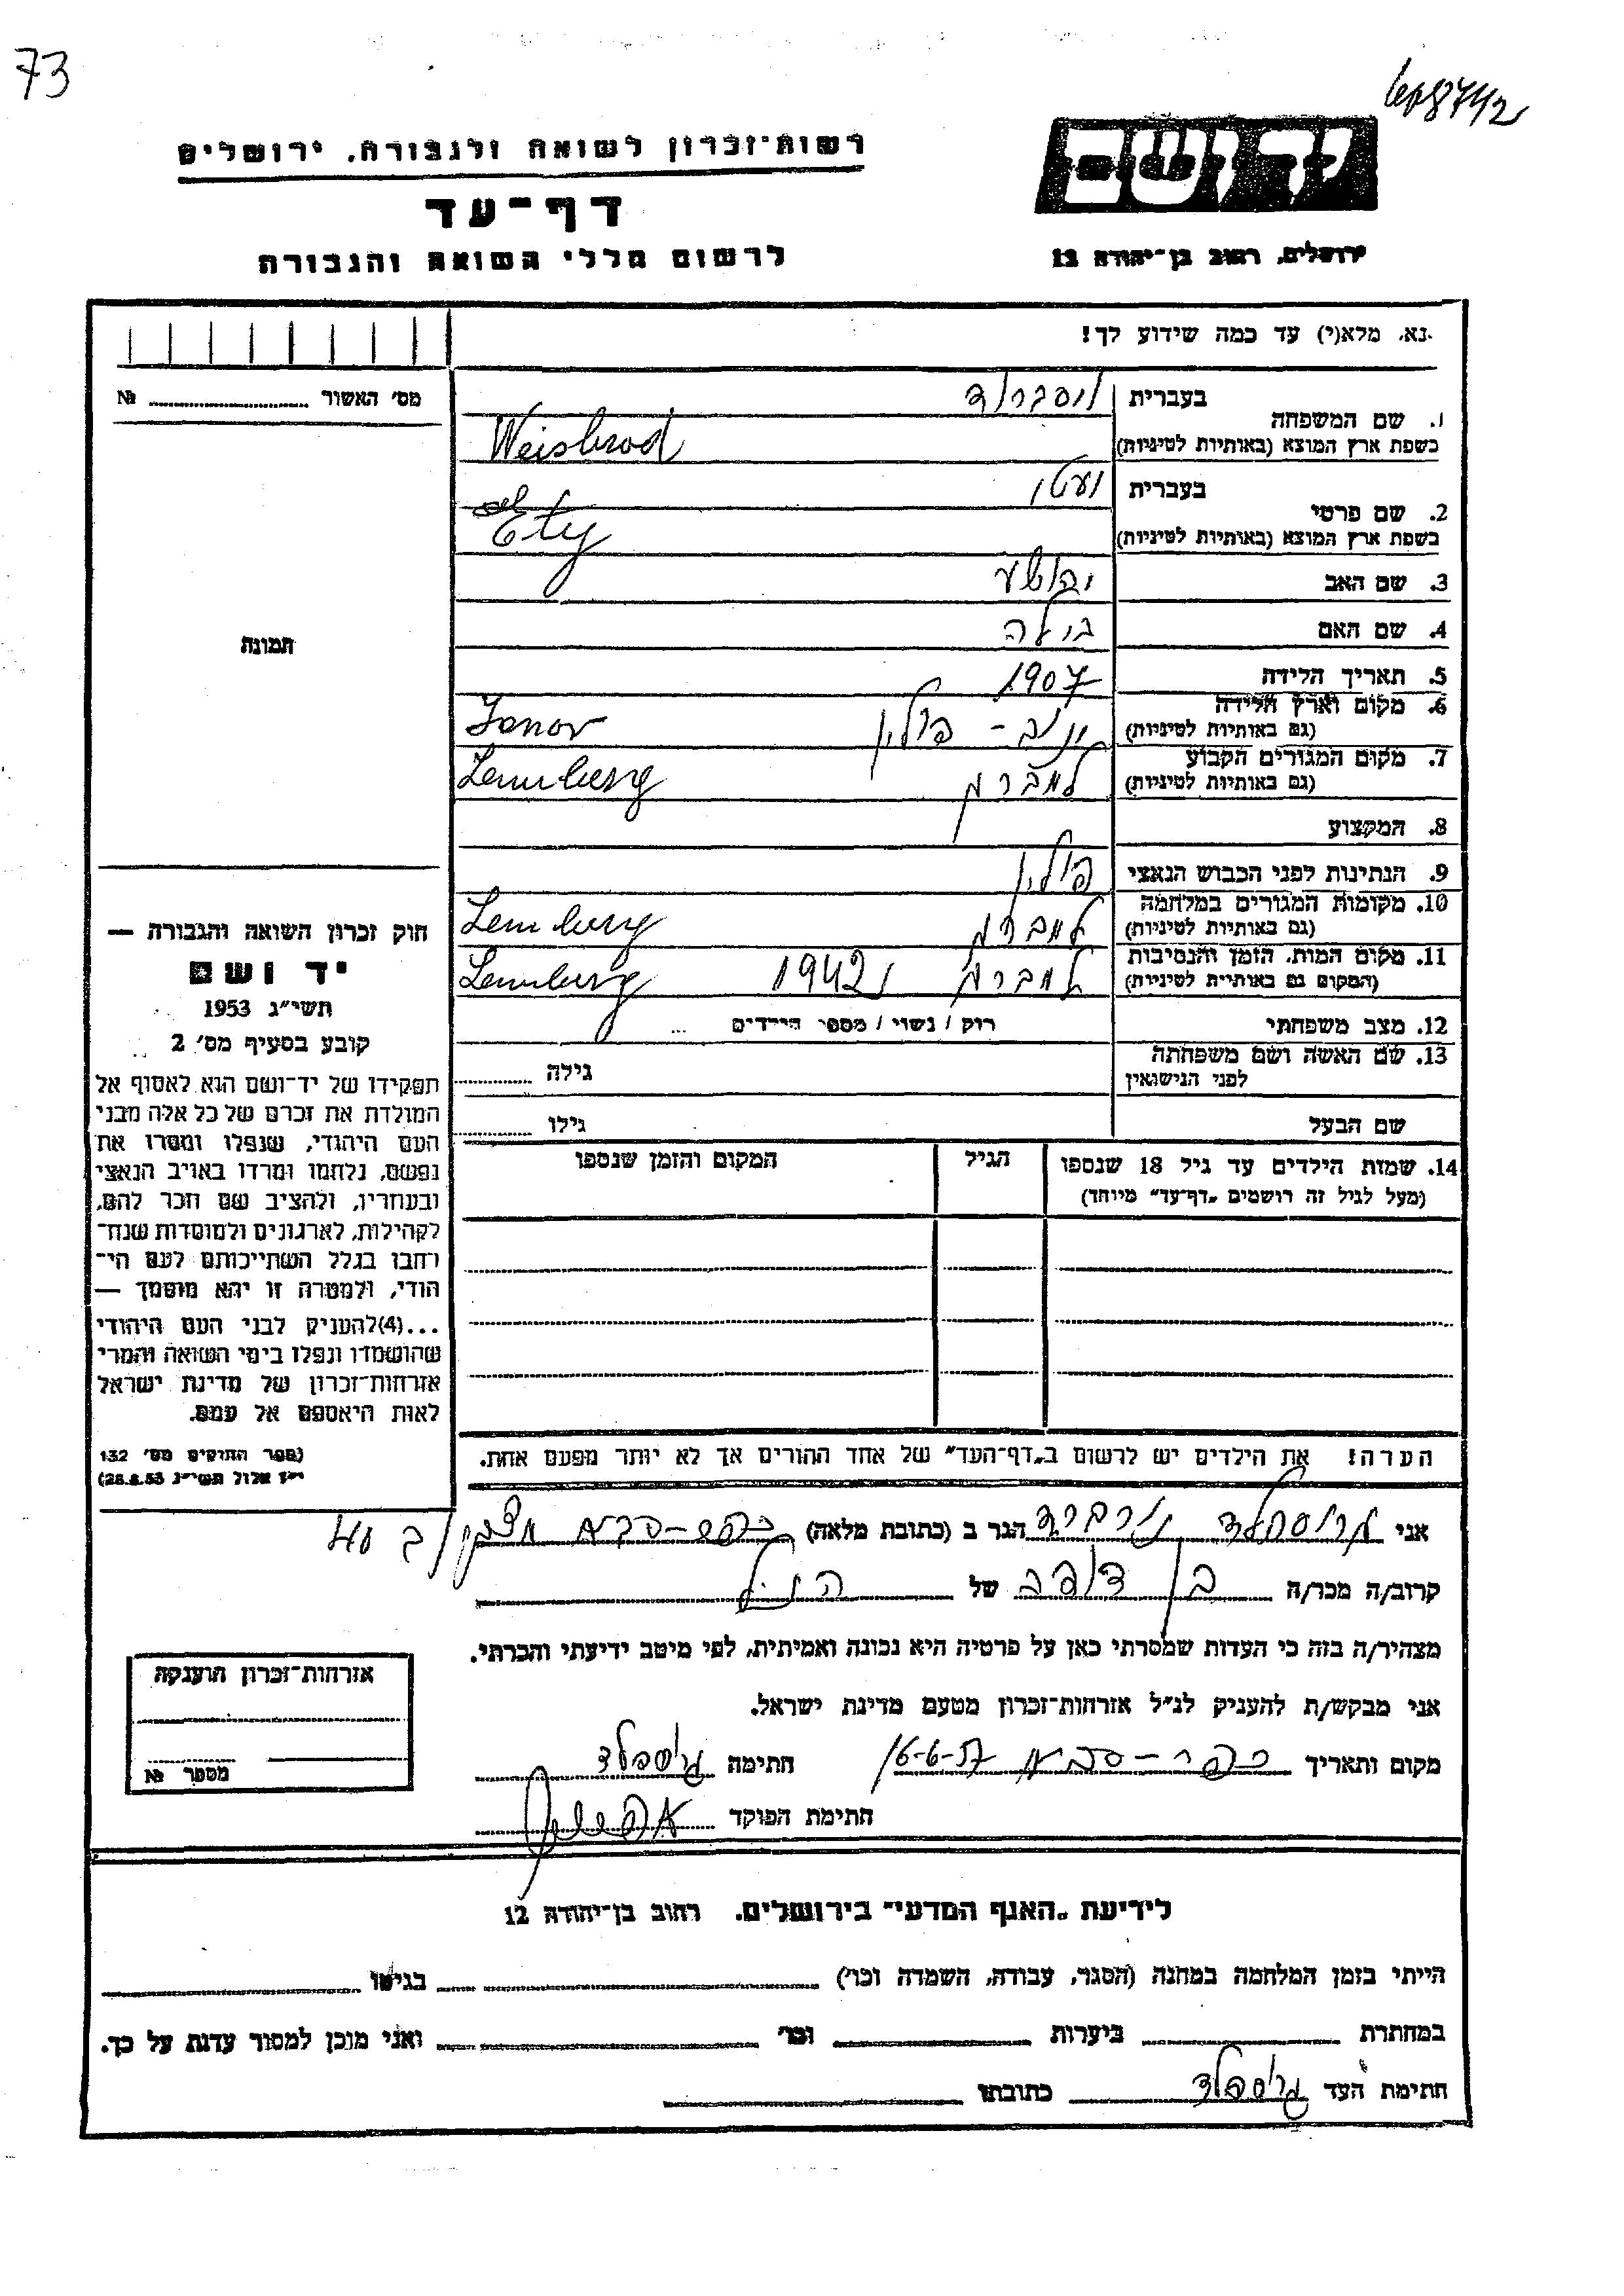 73
608742
יד ושם
ירושלים, רחוב בן־יהודה 12
רשות־זכרון לשואה ולגבורה, ירושלים
דף־עד
לרשום חללי השואה והגבורה
נא, מלא(י) עד כמה שידוע לך!
מס׳ האשור № ............
תמונה
1. שם המשפחה בעברית ויסברוד
בשפת ארץ המוצא (באותיות לטיניות) Weisbrod
2. שם פרטי בעברית
בשפת ארץ המוצא (באותיות לטיניות) Ety
3. שם האב יהושע
4. שם האם בילה
5. תאריך הלידה 1907
6. מקום וארץ הלידה (גם באותיות לטיניות) ינוב - פולין Janov
7. מקום המגורים הקבוע (גם באותיות לטיניות) למברג Lemberg
8. המקצוע
9. הנתינות לפני הכבוש הנאצי פולין
10. מקומות המגורים במלחמה (גם באותיות לטיניות) למברג Lemberg
11. מקום המות, הזמן והנסיבות (המקום גם באותיות לטיניות) למברג 1942 Lemberg
12. מצב משפחתי רוק / נשוי / מספר הילדים ...
13. שם האשה ושם משפחתה לפני הנישואין גילה ............
שם הבעל גילו ............
14. שמות הילדים עד גיל 18 שנספו הגיל המקום והזמן שנספו
(מעל לגיל זה רושמים „דף־עד” מיוחד)
הערה! את הילדים יש לרשום ב„דף־העד” של אחד ההורים אך לא יותר מפעם אחת.
חוק זכרון השואה והגבורה —
יד ושם
תשי״ג 1953
קובע בסעיף מס׳ 2
תפקידו של יד־ושם הוא לאסוף אל
המולדת את זכרם של כל אלה מבני
העם היהודי, שנפלו ומסרו את
נפשם, נלחמו ומרדו באויב הנאצי
ובעוזריו, ולהציב שם וזכר להם,
לקהילות, לארגונים ולמוסדות שנח־
רבו בגלל השתייכותם לעם הי־
הודי, ולמטרה זו יהא מוסמך —
...(4) להעניק לבני העם היהודי
שהושמדו ונפלו בימי השואה והמרי
אזרחות־זכרון של מדינת ישראל
לאות היאספם אל עמם.
(ספר החוקים מס׳ 132
י״ז אלול תשי״ג 28.8.53)
אני הגר ב (כתובת מלאה) כפר-סבא 40
קרוב/ה מכר/ה בן דודה של הנ״ל
מצהיר/ה בזה כי העדות שמסרתי כאן על פרטיה היא נכונה ואמיתית, לפי מיטב ידיעתי והכרתי.
אני מבקש/ת להעניק לנ״ל אזרחות־זכרון מטעם מדינת ישראל.
מקום ותאריך כפר-סבא 16-6-57 חתימה
חתימת הפוקד
אזרחות־זכרון הוענקה
מספר №
לידיעת „האגף המדעי” בירושלים, רחוב בן־יהודה 12
הייתי בזמן המלחמה במחנה (הסגר, עבודה, השמדה וכו׳) בגיטו
במחתרת ביערות וכו׳ ואני מוכן למסור עדות על כך.
חתימת העד כתובתו